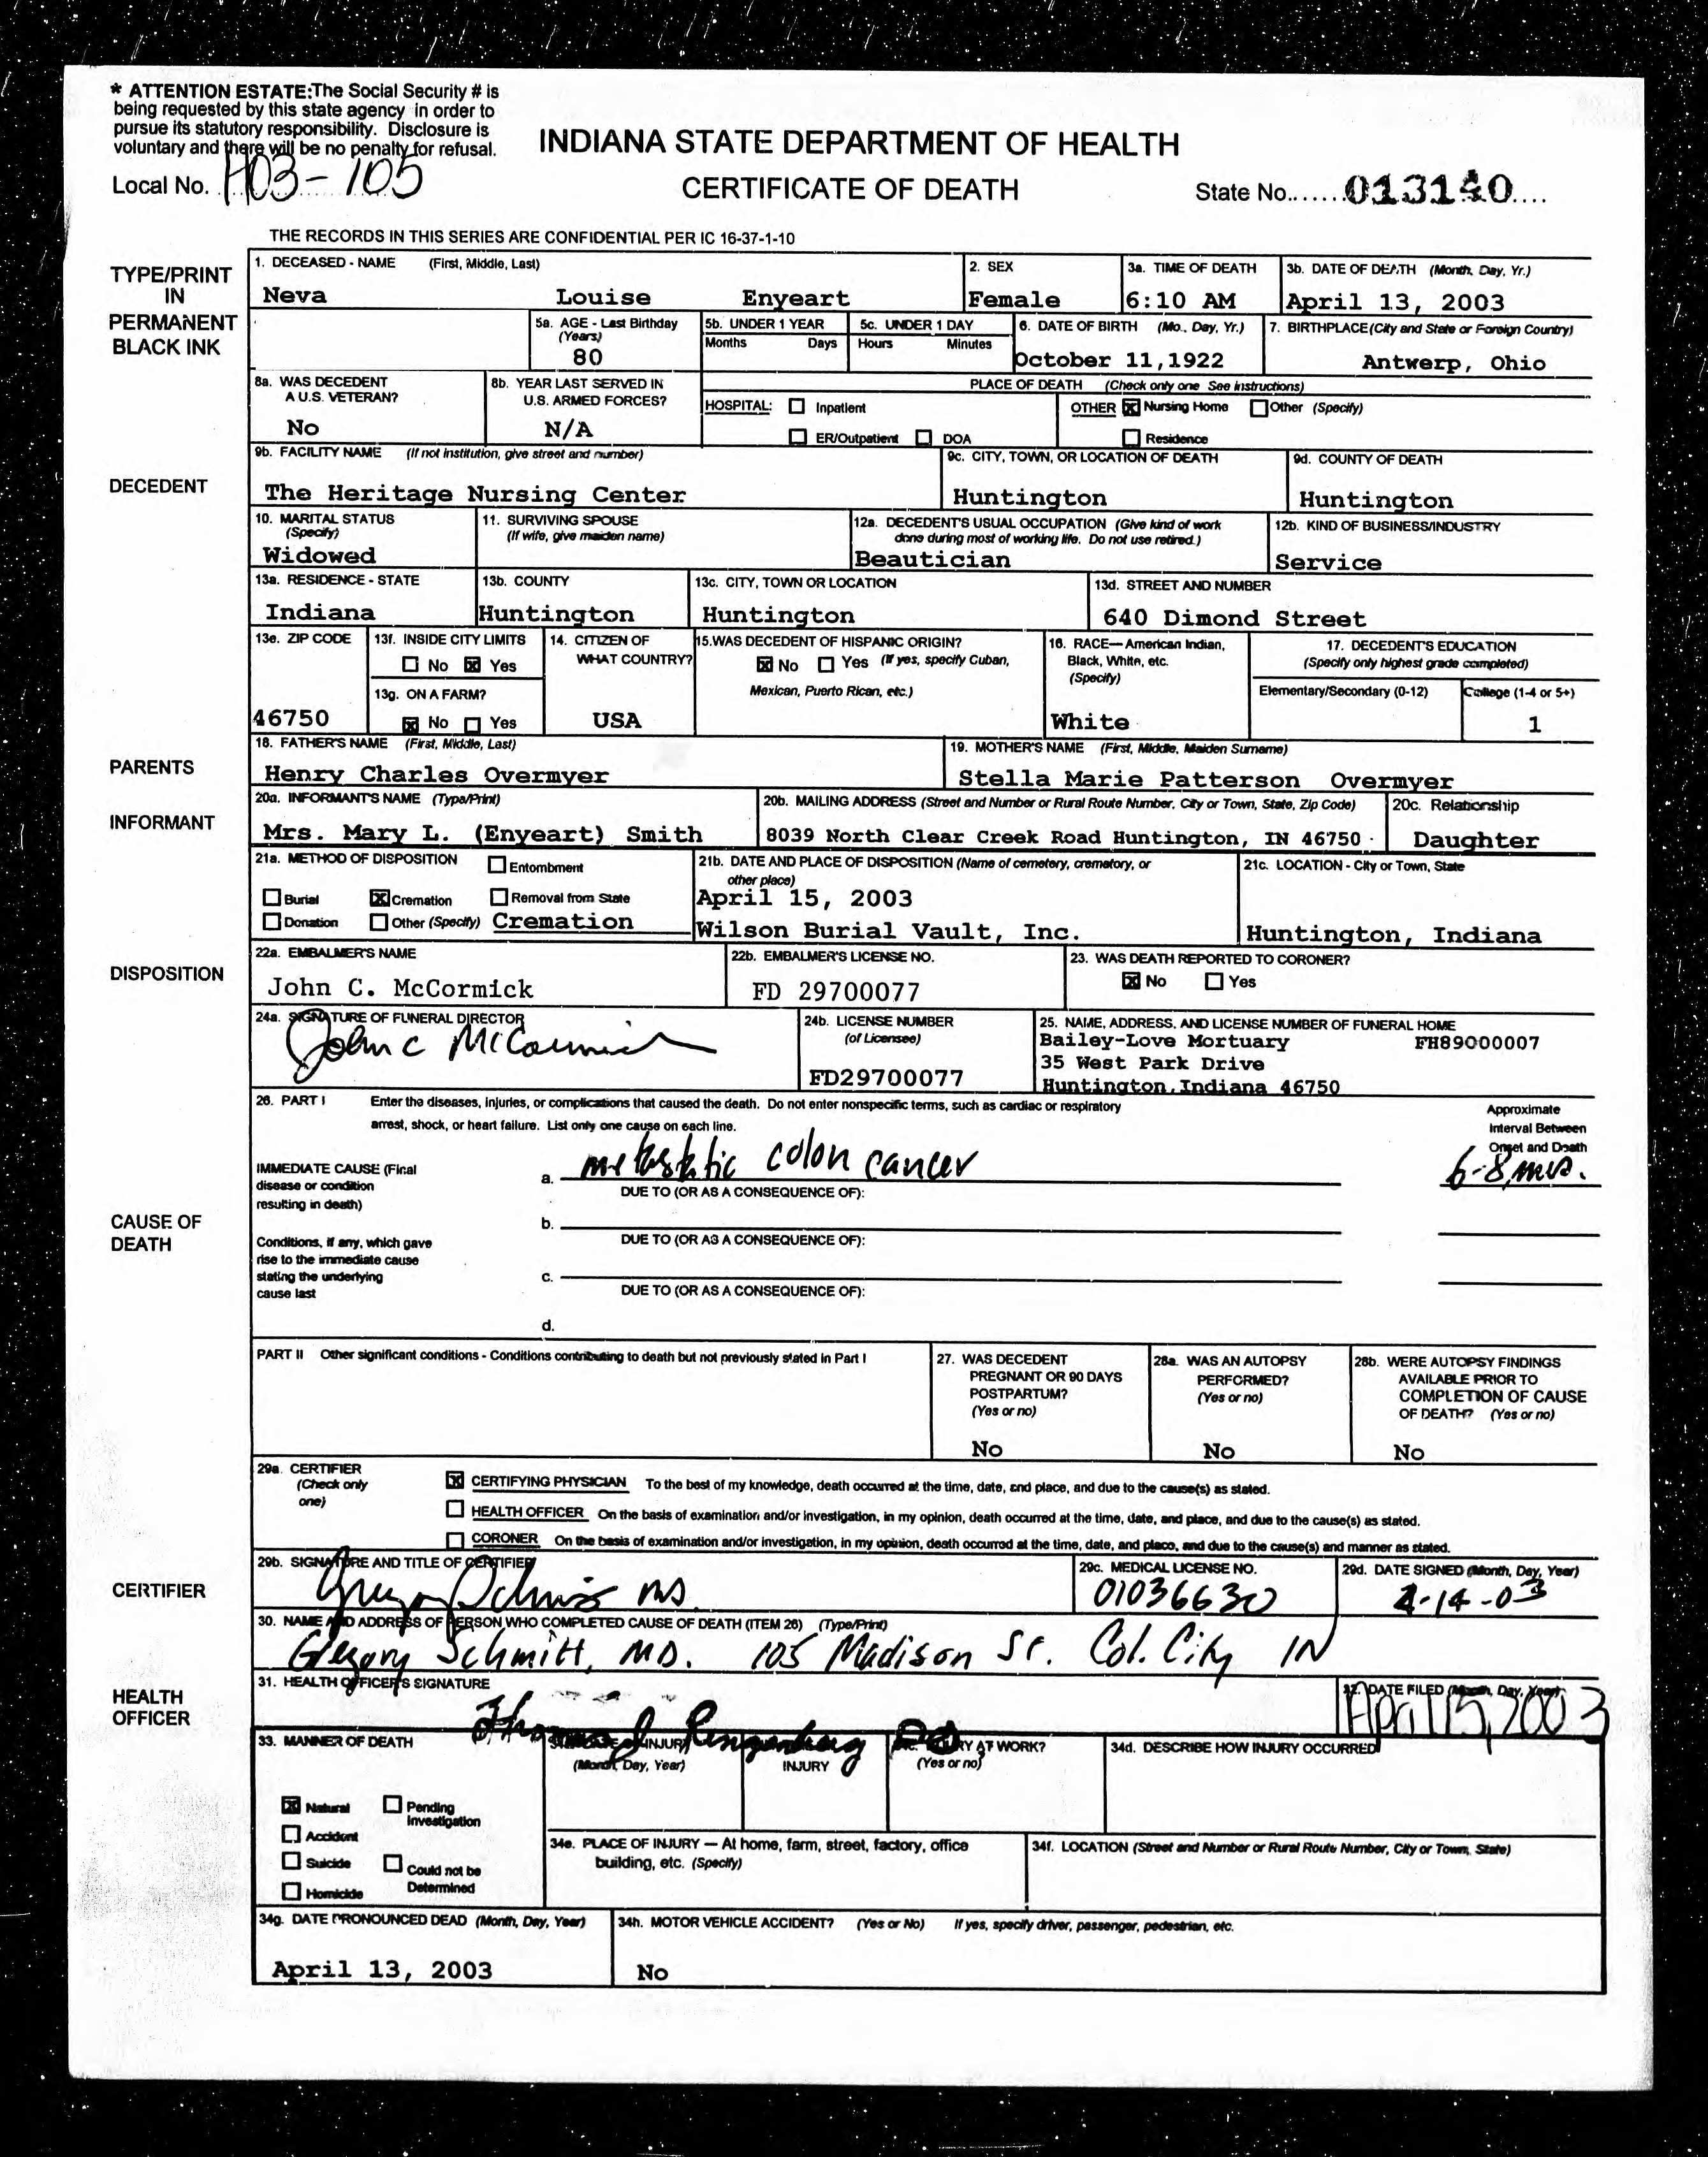 * ATTENTION ESTATE:The Social Security # is
being requested by this state agency in order to
pursue its statutory responsibility. Disclosure is
voluntary and there will be no penalty for refusal.
INDIANA STATE DEPARTMENT OF HEALTH
Local No. H03-105
CERTIFICATE OF DEATH
State No. 013140
THE RECORDS IN THIS SERIES ARE CONFIDENTIAL PER IC 16-37-1-10
TYPE/PRINT
IN
PERMANENT
BLACK INK
1. DECEASED - NAME (First, Middle, Last)
Neva Louise Enyeart
2. SEX
Female
3a. TIME OF DEATH
6:10 AM
3b. DATE OF DEATH (Month, Day, Yr.)
April 13, 2003
5a. AGE - Last Birthday
(Years)
80
5b. UNDER 1 YEAR
Months Days
5c. UNDER 1 DAY
Hours Minutes
6. DATE OF BIRTH (Mo., Day, Yr.)
October 11,1922
7. BIRTHPLACE (City and State or Foreign Country)
Antwerp, Ohio
8a. WAS DECEDENT
A U.S. VETERAN?
No
8b. YEAR LAST SERVED IN
U.S. ARMED FORCES?
N/A
PLACE OF DEATH (Check only one See instructions)
HOSPITAL: Inpatient
ER/Outpatient DOA
OTHER Nursing Home Other (Specify)
Residence
DECEDENT
9b. FACILITY NAME (If not institution, give street and number)
The Heritage Nursing Center
9c. CITY, TOWN, OR LOCATION OF DEATH
Huntington
9d. COUNTY OF DEATH
Huntington
10. MARITAL STATUS
(Specify)
Widowed
11. SURVIVING SPOUSE
(If wife, give maiden name)
12a. DECEDENT'S USUAL OCCUPATION (Give kind of work
done during most of working life. Do not use retired.)
Beautician
12b. KIND OF BUSINESS/INDUSTRY
Service
13a. RESIDENCE - STATE
Indiana
13b. COUNTY
Huntington
13c. CITY, TOWN OR LOCATION
Huntington
13d. STREET AND NUMBER
640 Dimond Street
13e. ZIP CODE
46750
13f. INSIDE CITY LIMITS
No Yes
13g. ON A FARM?
No Yes
14. CITIZEN OF
WHAT COUNTRY?
USA
15.WAS DECEDENT OF HISPANIC ORIGIN?
No Yes (If yes, specify Cuban,
Mexican, Puerto Rican, etc.)
16. RACE— American Indian,
Black, White, etc.
(Specify)
White
17. DECEDENT'S EDUCATION
(Specify only highest grade completed)
Elementary/Secondary (0-12)
College (1-4 or 5+)
1
PARENTS
18. FATHER'S NAME (First, Middle, Last)
Henry Charles Overmyer
19. MOTHER'S NAME (First, Middle, Maiden Surname)
Stella Marie Patterson Overmyer
INFORMANT
20a. INFORMANT'S NAME (Type/Print)
Mrs. Mary L. (Enyeart) Smith
20b. MAILING ADDRESS (Street and Number or Rural Route Number, City or Town, State, Zip Code)
8039 North Clear Creek Road Huntington, IN 46750
20c. Relationship
Daughter
21a. METHOD OF DISPOSITION Entombment
Burial Cremation Removal from State
Donation Other (Specify) Cremation
21b. DATE AND PLACE OF DISPOSITION (Name of cemetery, crematory, or
other place)
April 15, 2003
Wilson Burial Vault, Inc.
21c. LOCATION - City or Town, State
Huntington, Indiana
DISPOSITION
22a. EMBALMER'S NAME
John C. McCormick
22b. EMBALMER'S LICENSE NO.
FD 29700077
23. WAS DEATH REPORTED TO CORONER?
No Yes
24a. SIGNATURE OF FUNERAL DIRECTOR
John C McCormick
24b. LICENSE NUMBER
(of Licensee)
FD29700077
25. NAME, ADDRESS, AND LICENSE NUMBER OF FUNERAL HOME
Bailey-Love Mortuary FH89000007
35 West Park Drive
Huntington, Indiana 46750
CAUSE OF
DEATH
26. PART I Enter the diseases, injuries, or complications that caused the death. Do not enter nonspecific terms, such as cardiac or respiratory
arrest, shock, or heart failure. List only one cause on each line.
Approximate
Interval Between
Onset and Death
IMMEDIATE CAUSE (Final
disease or condition
resulting in death)
a. metastatic colon cancer
6-8 mos.
DUE TO (OR AS A CONSEQUENCE OF):
b.
Conditions, if any, which gave
rise to the immediate cause
stating the underlying
cause last
DUE TO (OR AS A CONSEQUENCE OF):
c.
DUE TO (OR AS A CONSEQUENCE OF):
d.
PART II Other significant conditions - Conditions contributing to death but not previously stated in Part I
27. WAS DECEDENT
PREGNANT OR 90 DAYS
POSTPARTUM?
(Yes or no)
No
28a. WAS AN AUTOPSY
PERFORMED?
(Yes or no)
No
28b. WERE AUTOPSY FINDINGS
AVAILABLE PRIOR TO
COMPLETION OF CAUSE
OF DEATH? (Yes or no)
No
CERTIFIER
29a. CERTIFIER
(Check only
one)
CERTIFYING PHYSICIAN To the best of my knowledge, death occurred at the time, date, and place, and due to the cause(s) as stated.
HEALTH OFFICER On the basis of examination and/or investigation, in my opinion, death occurred at the time, date, and place, and due to the cause(s) as stated.
CORONER On the basis of examination and/or investigation, in my opinion, death occurred at the time, date, and place, and due to the cause(s) and manner as stated.
29b. SIGNATURE AND TITLE OF CERTIFIER
Gregory Schmitt MD
29c. MEDICAL LICENSE NO.
01036630
29d. DATE SIGNED (Month, Day, Year)
4-14-03
30. NAME AND ADDRESS OF PERSON WHO COMPLETED CAUSE OF DEATH (ITEM 26) (Type/Print)
Gregory Schmitt, MD. 105 Madison St. Col. City IN
HEALTH
OFFICER
31. HEALTH OFFICER'S SIGNATURE
32. DATE FILED (Month, Day, Year)
April 15, 2003
33. MANNER OF DEATH
Natural Pending
Investigation
Accident
Suicide Could not be
Determined
Homicide
INJURY
(Month, Day, Year)
INJURY
INJURY AT WORK?
(Yes or no)
34d. DESCRIBE HOW INJURY OCCURRED
34e. PLACE OF INJURY — At home, farm, street, factory, office
building, etc. (Specify)
34f. LOCATION (Street and Number or Rural Route Number, City or Town, State)
34g. DATE PRONOUNCED DEAD (Month, Day, Year)
April 13, 2003
34h. MOTOR VEHICLE ACCIDENT? (Yes or No) If yes, specify driver, passenger, pedestrian, etc.
No